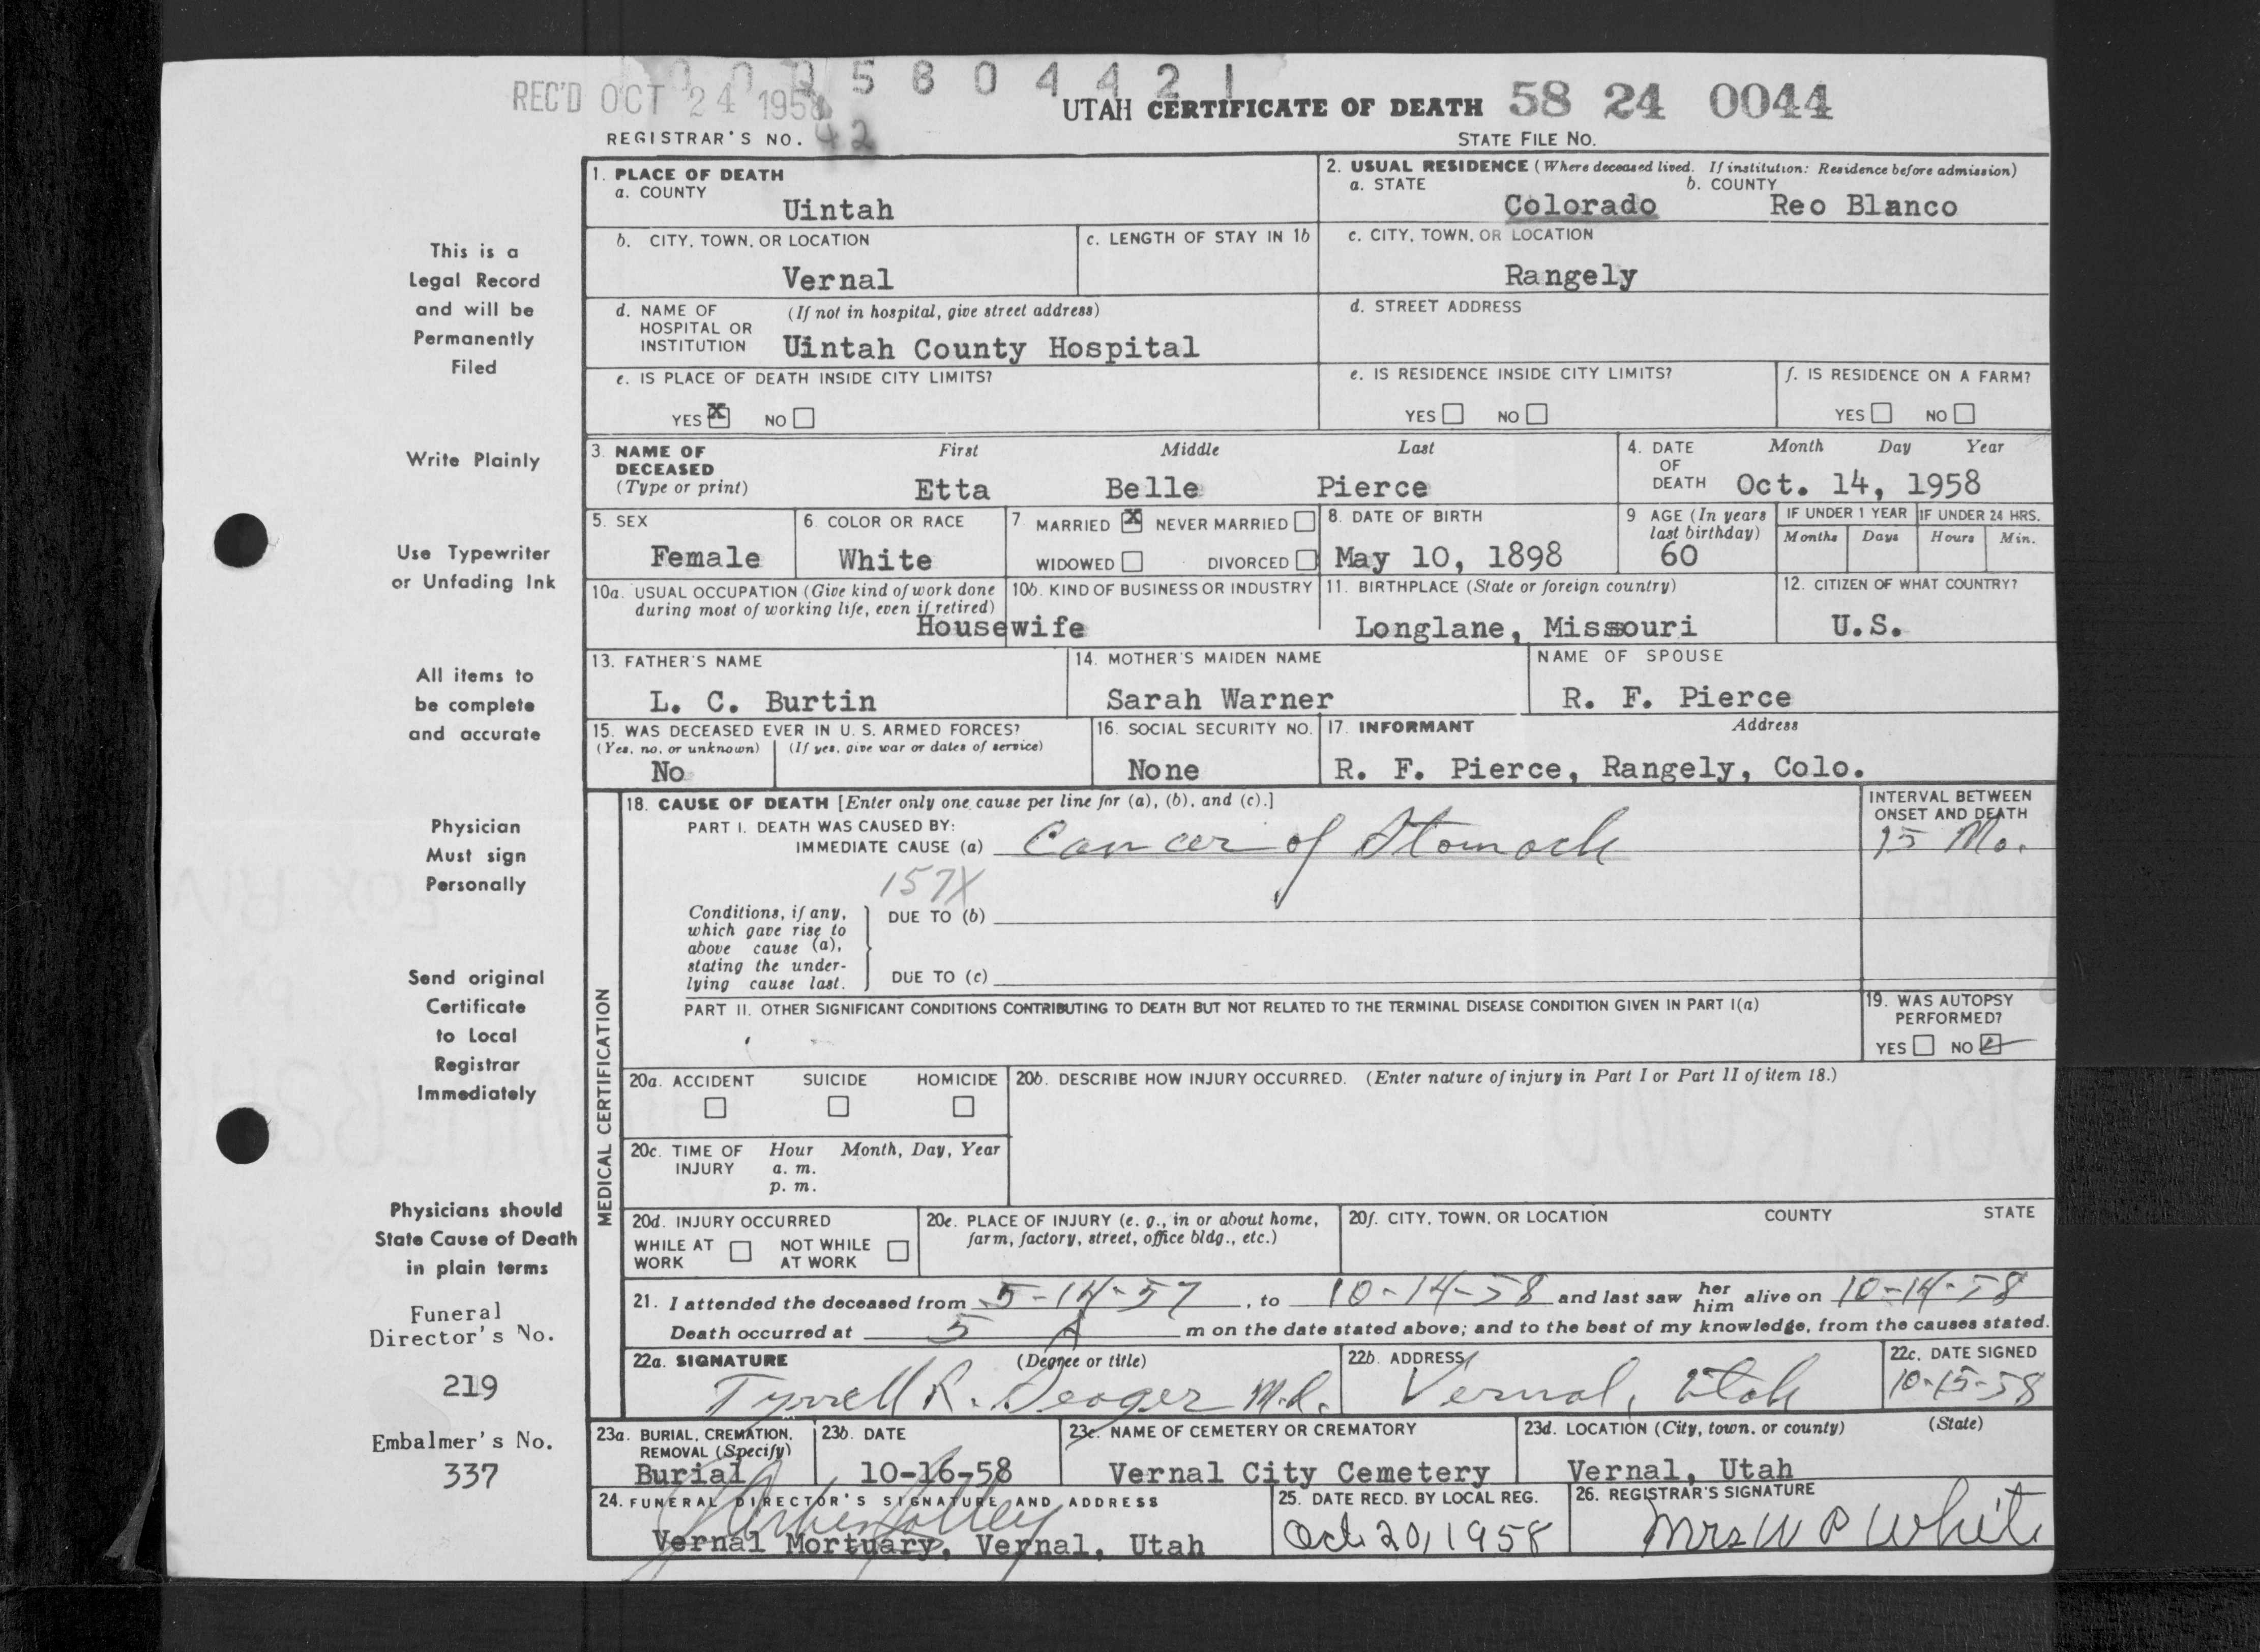 0 0 0 5 8 0 4 4 2 1
REC'D OCT 24 1958
UTAH CERTIFICATE OF DEATH 58 24 0044
REGISTRAR'S NO. 42
STATE FILE NO.
This is a
Legal Record
and will be
Permanently
Filed
Write Plainly
Use Typewriter
or Unfading Ink
All items to
be complete
and accurate
Physician
Must sign
Personally
Send original
Certificate
to Local
Registrar
Immediately
Physicians should
State Cause of Death
in plain terms
Funeral
Director's No.
219
Embalmer's No.
337
1. PLACE OF DEATH
a. COUNTY
Uintah
2. USUAL RESIDENCE (Where deceased lived. If institution: Residence before admission)
a. STATE b. COUNTY
Colorado Reo Blanco
b. CITY, TOWN, OR LOCATION
Vernal
c. LENGTH OF STAY IN 1b
c. CITY, TOWN, OR LOCATION
Rangely
d. NAME OF (If not in hospital, give street address)
HOSPITAL OR
INSTITUTION Uintah County Hospital
d. STREET ADDRESS
e. IS PLACE OF DEATH INSIDE CITY LIMITS?
YES X NO
e. IS RESIDENCE INSIDE CITY LIMITS?
YES NO
f. IS RESIDENCE ON A FARM?
YES NO
3. NAME OF DECEASED
(Type or print)
First Middle Last
Etta Belle Pierce
4. DATE OF DEATH
Month Day Year
Oct. 14, 1958
5. SEX
Female
6. COLOR OR RACE
White
7 MARRIED X NEVER MARRIED
WIDOWED DIVORCED
8. DATE OF BIRTH
May 10, 1898
9 AGE (In years
last birthday)
60
IF UNDER 1 YEAR IF UNDER 24 HRS.
Months Days Hours Min.
10a. USUAL OCCUPATION (Give kind of work done
during most of working life, even if retired)
10b. KIND OF BUSINESS OR INDUSTRY
Housewife
11. BIRTHPLACE (State or foreign country)
Longlane, Missouri
12. CITIZEN OF WHAT COUNTRY?
U.S.
13. FATHER'S NAME
L. C. Burtin
14. MOTHER'S MAIDEN NAME
Sarah Warner
NAME OF SPOUSE
R. F. Pierce
15. WAS DECEASED EVER IN U. S. ARMED FORCES?
(Yes, no, or unknown) (If yes, give war or dates of service)
No
16. SOCIAL SECURITY NO.
None
17. INFORMANT Address
R. F. Pierce, Rangely, Colo.
MEDICAL CERTIFICATION
18. CAUSE OF DEATH [Enter only one cause per line for (a), (b), and (c).]
PART I. DEATH WAS CAUSED BY:
IMMEDIATE CAUSE (a) Cancer of Stomach
INTERVAL BETWEEN
ONSET AND DEATH
15 Mo.
157X
Conditions, if any,
which gave rise to
above cause (a),
stating the under-
lying cause last.
DUE TO (b)
DUE TO (c)
PART II. OTHER SIGNIFICANT CONDITIONS CONTRIBUTING TO DEATH BUT NOT RELATED TO THE TERMINAL DISEASE CONDITION GIVEN IN PART I(a)
19. WAS AUTOPSY
PERFORMED?
YES NO
20a. ACCIDENT SUICIDE HOMICIDE
20b. DESCRIBE HOW INJURY OCCURRED. (Enter nature of injury in Part I or Part II of item 18.)
20c. TIME OF INJURY
Hour Month, Day, Year
a. m.
p. m.
20d. INJURY OCCURRED
WHILE AT WORK NOT WHILE AT WORK
20e. PLACE OF INJURY (e. g., in or about home,
farm, factory, street, office bldg., etc.)
20f. CITY, TOWN, OR LOCATION COUNTY STATE
21. I attended the deceased from 5-14-57, to 10-14-58 and last saw her him alive on 10-14-58
Death occurred at 5 A m on the date stated above; and to the best of my knowledge, from the causes stated.
22a. SIGNATURE (Degree or title)
Tyrrell R. Seager M.D.
22b. ADDRESS
Vernal, Utah
22c. DATE SIGNED
10-15-58
23a. BURIAL, CREMATION,
REMOVAL (Specify)
Burial
23b. DATE
10-16-58
23c. NAME OF CEMETERY OR CREMATORY
Vernal City Cemetery
23d. LOCATION (City, town, or county) (State)
Vernal, Utah
24. FUNERAL DIRECTOR'S SIGNATURE AND ADDRESS
Vernal Mortuary, Vernal, Utah
25. DATE RECD. BY LOCAL REG.
Oct. 20, 1958
26. REGISTRAR'S SIGNATURE
Mrs W P White